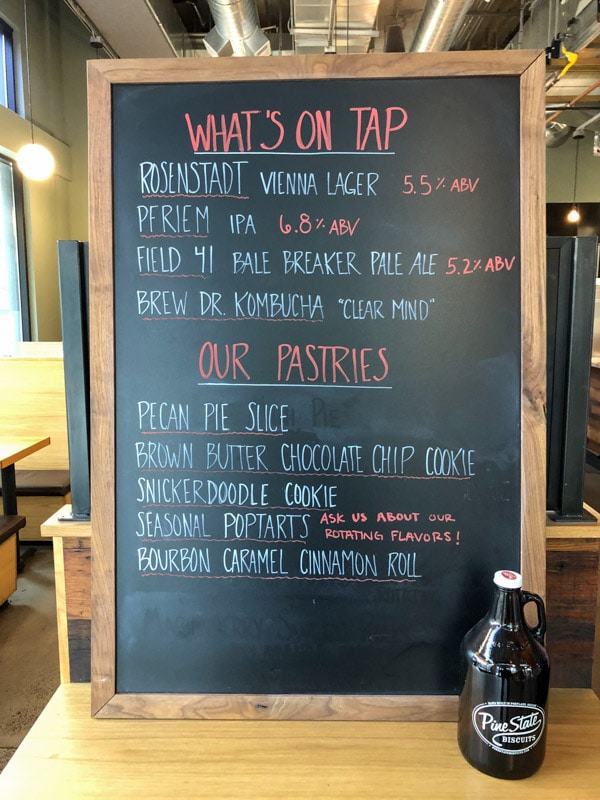 WHAT'S ON TAP
ROSENSTADT VIENNA LAGER 5.5% ABV
PFRIEM IPA 6.8% ABV
FIELD 41 BALE BREAKER PALE ALE 5.2% ABV
BREW DR. KOMBUCHA "CLEAR MIND"
OUR PASTRIES
PECAN PIE SLICE
BROWN BUTTER CHOCOLATE CHIP COOKIE
SNICKERDOODLE COOKIE
SEASONAL POPTARTS ASK US ABOUT OUR
ROTATING FLAVORS!
BOURBON CARAMEL CINNAMON ROLL
Pine State
BISCUITS